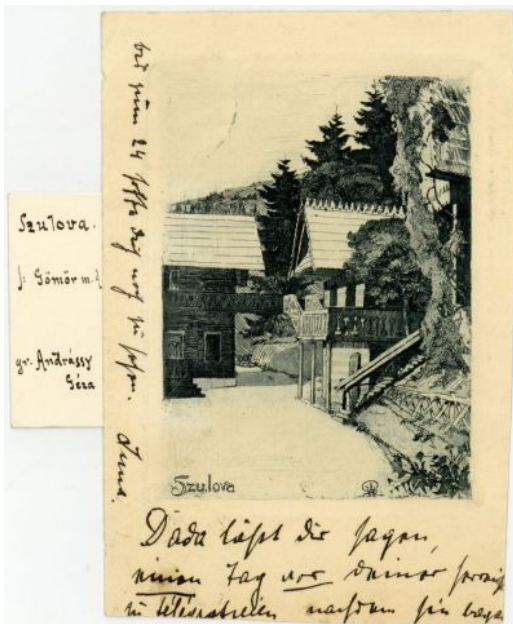 Szulova.
Gömör m.
gr. Andrássy
Géza
bis zum 24 hoffe dich noch zu sehen.
Szulova
Dada läßt dir sagen,
einen Tag vor deiner
zu nachdem sie